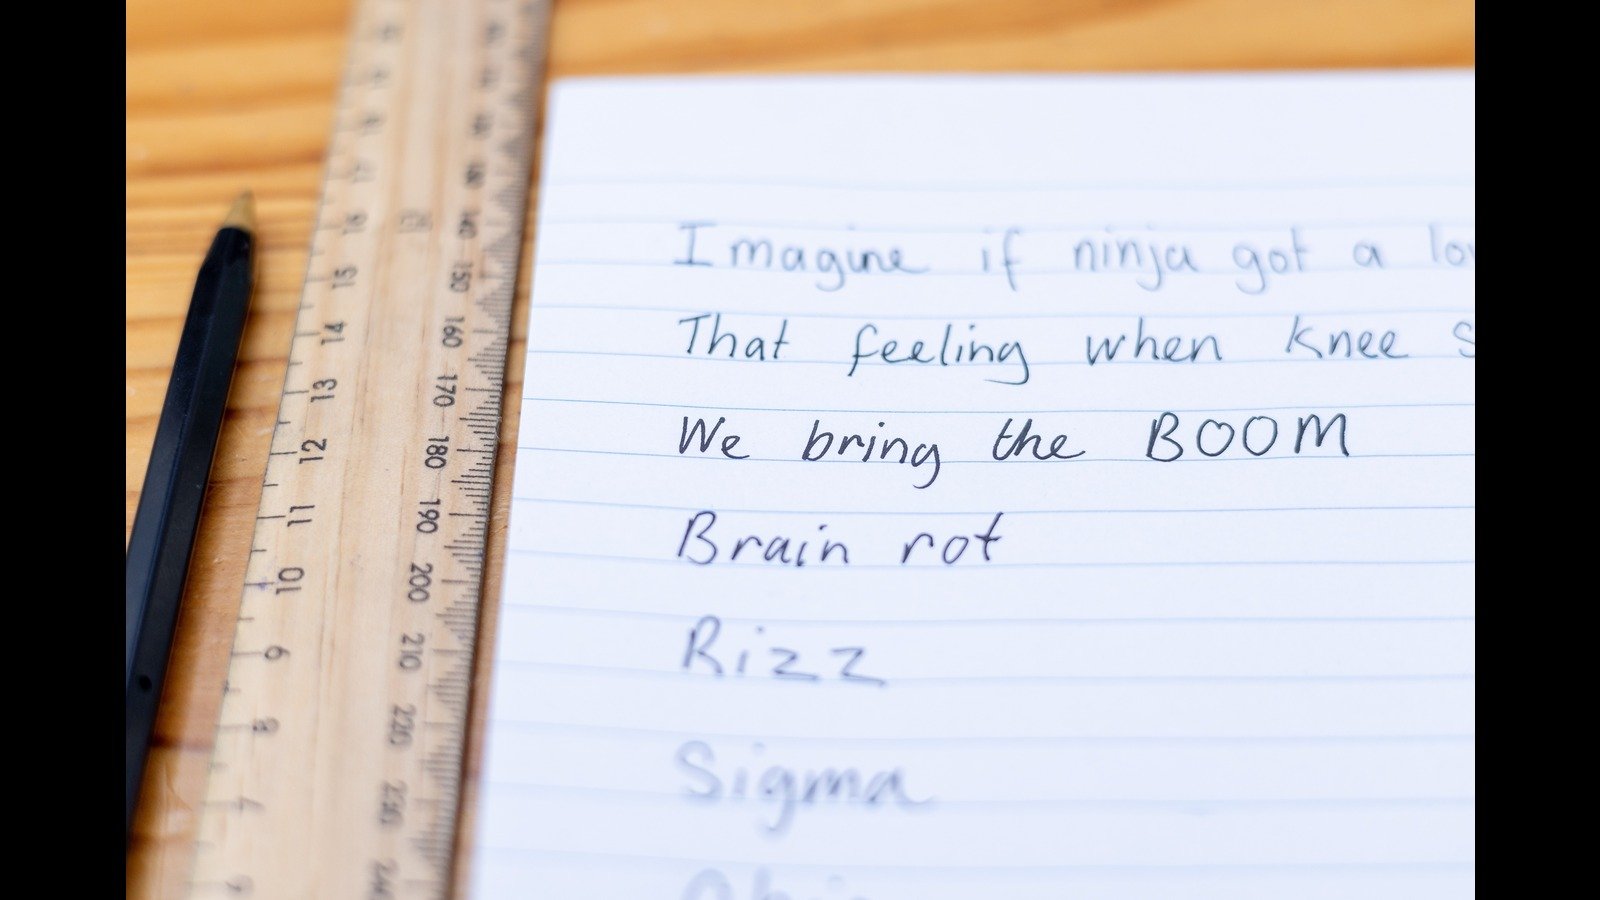 Imagine if ninja got a
That feeling when knee
We bring the BOOM
Brain rot
Rizz
Sigma
16
15
14
13
12
11
10
9
8
7
140
150
160
170
180
190
200
210
220
230